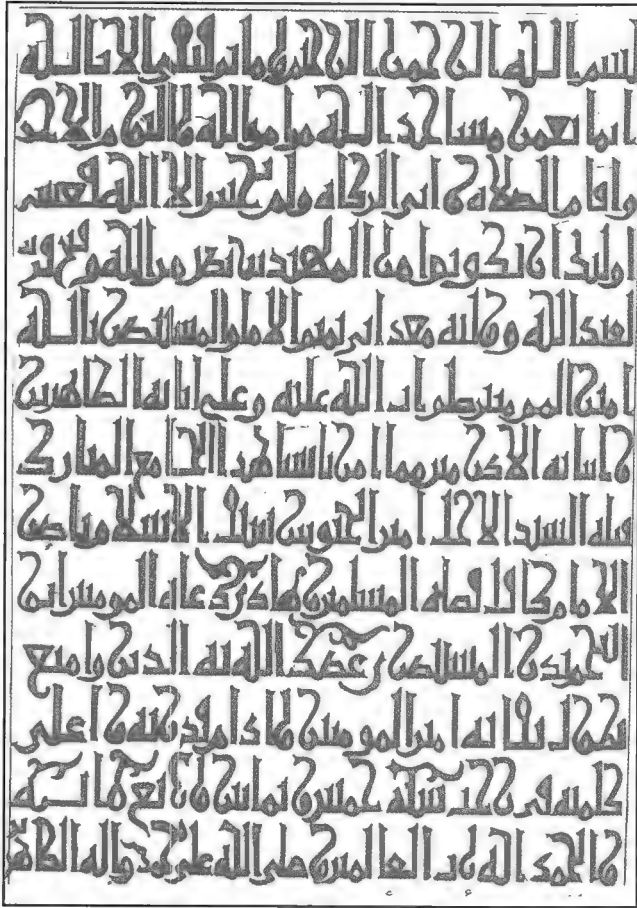 بسم الله الرحمن الرحيم وما توفيقي الا بالله
انما يعمر مساجد الله من امن بالله واليوم الاخر
واقام الصلاة واتى الزكاة ولم يخش الا الله فعسى
اولئك ان يكونوا من المهتدين نصر من الله وفتح قريب
لعبد الله ووليه معد ابي تميم الامام المستنصر بالله
امير المومنين صلوات الله عليه وعلى ابائه الطاهرين
وابنائه الاكرمين مما امر بانشا هذا الجامع المبارك
فتاه السيد الاجل امير الجيوش سيف الاسلام ناصر
الامام كافل قضاة المسلمين وهادي دعاة المومنين ابو
النجم بدر المستنصري عضد الله به الدين وامتع
بطول بقائه امير المومنين وادام قدرته واعلى
كلمته في سنة خمس وثمانين واربع مائة
والحمد لله رب العالمين صلى الله على محمد واله الطاهر